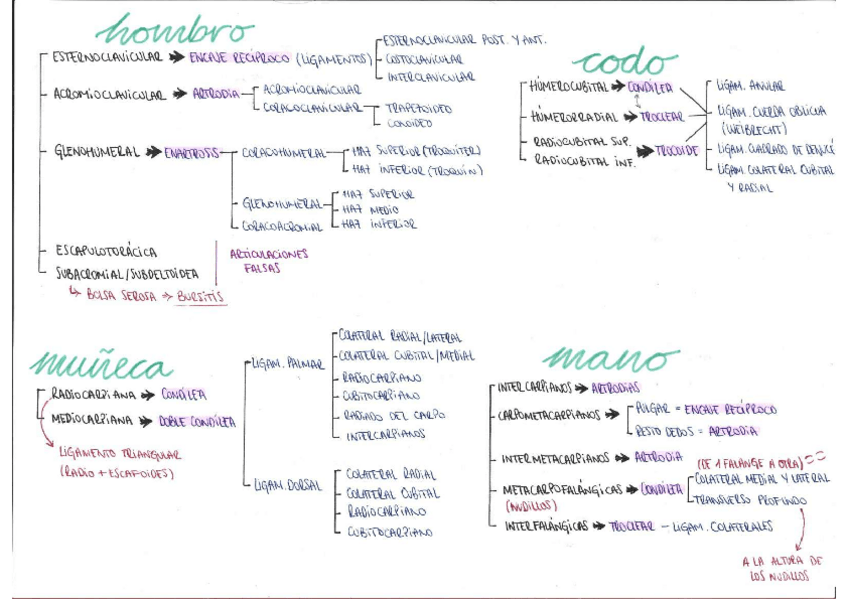 hombro
ESTERNOCLAVICULAR → ENCAJE RECÍPROCO (LIGAMENTOS)
ESTERNOCLAVICULAR POST. Y ANT.
COSTOCLAVICULAR
INTERCLAVICULAR
ACROMIOCLAVICULAR → ARTRODIA
ACROMIOCLAVICULAR
CORACOCLAVICULAR
TRAPEZOIDEO
CONOIDEO
GLENOHUMERAL → ENARTROSIS
CORACOHUMERAL
HAZ SUPERIOR (TROQUÍTER)
HAZ INFERIOR (TROQUÍN)
GLENOHUMERAL
HAZ SUPERIOR
HAZ MEDIO
HAZ INFERIOR
CORACOACROMIAL
ESCAPULOTORÁCICA
SUBACROMIAL/SUBDELTOÍDEA
ARTICULACIONES
FALSAS
↳ BOLSA SEROSA → BURSITIS
codo
HÚMEROCUBITAL → CONDÍLEA
HÚMERORRADIAL → TROCLEAR
RADIOCUBITAL SUP.
RADIOCUBITAL INF. → TROCOIDE
LIGAM. ANULAR
LIGAM. CUERDA OBLICUA
(WEIBRECHT)
LIGAM. CUADRADO DE DENUCÉ
LIGAM. COLATERAL CUBITAL
Y RADIAL
muñeca
RADIOCARPIANA → CONDÍLEA
MEDIOCARPIANA → DOBLE CONDÍLEA
LIGAMENTO TRIANGULAR
(RADIO + ESCAFOIDES)
LIGAM. PALMAR
COLATERAL RADIAL/LATERAL
COLATERAL CUBITAL/MEDIAL
RADIOCARPIANO
CUBITOCARPIANO
RADIADO DEL CARPO
INTERCARPIANOS
LIGAM. DORSAL
COLATERAL RADIAL
COLATERAL CUBITAL
RADIOCARPIANO
CUBITOCARPIANO
mano
INTERCARPIANOS → ARTRODIAS
CARPOMETACARPIANOS →
PULGAR = ENCAJE RECÍPROCO
RESTO DEDOS = ARTRODIA
INTERMETACARPIANOS → ARTRODIA
(DE 1 FALANGE A OTRA)
METACARPOFALÁNGICAS → CONDÍLEA
(NUDILLOS)
COLATERAL MEDIAL Y LATERAL
TRANSVERSO PROFUNDO
INTERFALÁNGICAS → TROCLEAR – LIGAM. COLATERALES
A LA ALTURA DE
LOS NUDILLOS